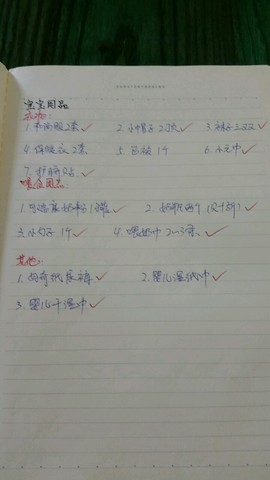 宝宝用品
衣物:
1. 和尚服2套✓ 2. 小帽子2顶✓ 3. 袜子三双✓
4. 保暖衣2套 5. 包被1个 6. 小毛巾✓
7. 护脐贴✓
喂食用品:
1. 奶粉1罐✓ 2. 奶瓶两个 ✓
3. 小勺子1个✓ 4. 喂奶巾2~3条✓
其他:
1. 纸尿裤✓ 2. 婴儿湿纸巾✓
3. 婴儿干湿巾✓